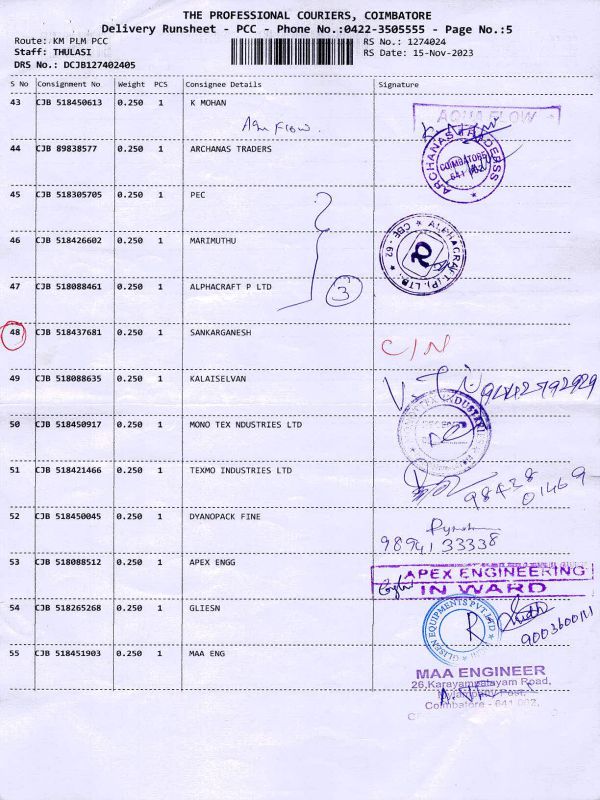 THE PROFESSIONAL COURIERS, COIMBATORE
Delivery Runsheet - PCC - Phone No.:0422-3505555 - Page No.:5
Route: KM PLM PCC
RS No.: 1274024
Staff: THULASI
RS Date: 15-Nov-2023
DRS No.: DCJB127402405
S No Consignment No Weight PCS Consignee Details Signature
43 CJB 518450613 0.250 1 K MOHAN
AQUA FLOW
Aqu Flow.
44 CJB 89838577 0.250 1 ARCHANAS TRADERS
ARCHANAS TRADERSS
COIMBATORE
641 062
45 CJB 518305705 0.250 1 PEC
46 CJB 518426602 0.250 1 MARIMUTHU
47 CJB 518088461 0.250 1 ALPHACRAFT P LTD
ALPHACRAFT.(P).LTD. CBE - 62
3
48 CJB 518437681 0.250 1 SANKARGANESH
C/N
49 CJB 518088635 0.250 1 KALAISELVAN
9442792929
50 CJB 518450917 0.250 1 MONO TEX NDUSTRIES LTD
51 CJB 518421466 0.250 1 TEXMO INDUSTRIES LTD
98438
01469
52 CJB 518450045 0.250 1 DYANOPACK FINE
9894133338
53 CJB 518088512 0.250 1 APEX ENGG
APEX ENGINEERING
IN WARD
54 CJB 518265268 0.250 1 GLIESN
GLISEN EQUIPMENTS PVT LTD
55 CJB 518451903 0.250 1 MAA ENG
MAA ENGINEER
26,Karayampalayam Road,
Coimbatore - 641 062,